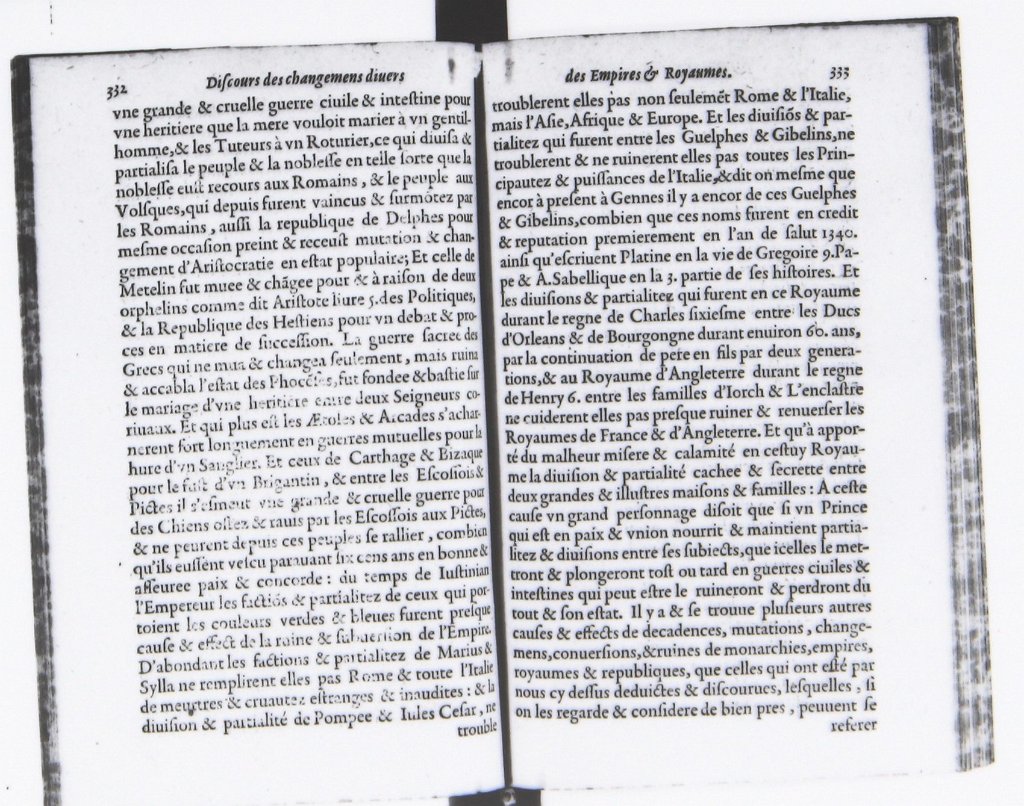 332
Discours des changemens diuers
vne grande & cruelle guerre ciuile & intestine pour
vne heritiere que la mere vouloit marier à vn gentil-
homme,& les Tuteurs à vn Roturier,ce qui diuisa &
partialisa le peuple & la noblesse en telle sorte que la
noblesse eust recours aux Romains, & le peuple aux
Volsques,qui depuis furent vaincus & surmõtez par
les Romains, aussi la republique de Delphes pour
mesme occasion preint & receust mutation & chan-
gement d'Aristocratie en estat populaire; Et celle de
Metelin fut muee & chãgee pour & à raison de deux
orphelins comme dit Aristote liure 5.des Politiques,
& la Republique des Hestiens pour vn debat & pro-
ces en matiere de succession. La guerre sacree des
Grecs qui ne mua & changea seulement, mais ruina
& accabla l'estat des Phocẽses,fut fondee & bastie sur
le mariage d'vne heritiere entre deux Seigneurs co-
riuaux. Et qui plus est les Ætoles & Arcades s'achar-
nerent fort longuement en guerres mutuelles pour la
hure d'vn Sanglier. Et ceux de Carthage & Bizaque
pour le fait d'vn Brigantin, & entre les Escossois &
Pictes il s'esmeut vne grande & cruelle guerre pour
des Chiens ostez & rauis par les Escossois aux Pictes,
& ne peurent depuis ces peuples se rallier, combien
qu'ils eussent vescu parauant six cens ans en bonne &
asseuree paix & concorde: du temps de Iustinian
l'Empereur les factiõs & partialitez de ceux qui por-
toient les couleurs verdes & bleues furent presque
cause & effect de la ruine & subuersion de l'Empire.
D'abondant les factions & partialitez de Marius &
Sylla ne remplirent elles pas Rome & toute l'Italie
de meurtres & cruautez estranges & inaudites: & la
diuision & partialité de Pompee & Iules Cesar, ne
trouble
des Empires & Royaumes.
333
troublerent elles pas non seulemẽt Rome & l'Italie,
mais l'Asie,Afrique & Europe. Et les diuisiõs & par-
tialitez qui furent entre les Guelphes & Gibelins,ne
troublerent & ne ruinerent elles pas toutes les Prin-
cipautez & puissances de l'Italie,& dit on mesme que
encor à present à Gennes il y a encor de ces Guelphes
& Gibelins,combien que ces noms furent en credit
& reputation premierement en l'an de salut 1340.
ainsi qu'escriuent Platine en la vie de Gregoire 9.Pa-
pe & A.Sabellique en la 3. partie de ses histoires. Et
les diuisions & partialitez qui furent en ce Royaume
durant le regne de Charles sixiesme entre les Ducs
d'Orleans & de Bourgongne durant enuiron 60. ans,
par la continuation de pere en fils par deux genera-
tions,& au Royaume d'Angleterre durant le regne
de Henry 6. entre les familles d'Iorch & L'enclastre
ne cuiderent elles pas presque ruiner & renuerser les
Royaumes de France & d'Angleterre. Et qu'à appor-
té du malheur misere & calamité en cestuy Royau-
me la diuision & partialité cachee & secrette entre
deux grandes & illustres maisons & familles: A ceste
cause vn grand personnage disoit que si vn Prince
qui est en paix & vnion nourrit & maintient partia-
litez & diuisions entre ses subiects,que icelles le met-
tront & plongeront tost ou tard en guerres ciuiles &
intestines qui peut estre le ruineront & perdront du
tout & son estat. Il y a & se trouue plusieurs autres
causes & effects de decadences, mutations, change-
mens,conuersions,& ruines de monarchies,empires,
royaumes & republiques, que celles qui ont esté par
nous cy dessus deduictes & discourues, lesquelles, si
on les regarde & considere de bien pres, peuuent se
referer